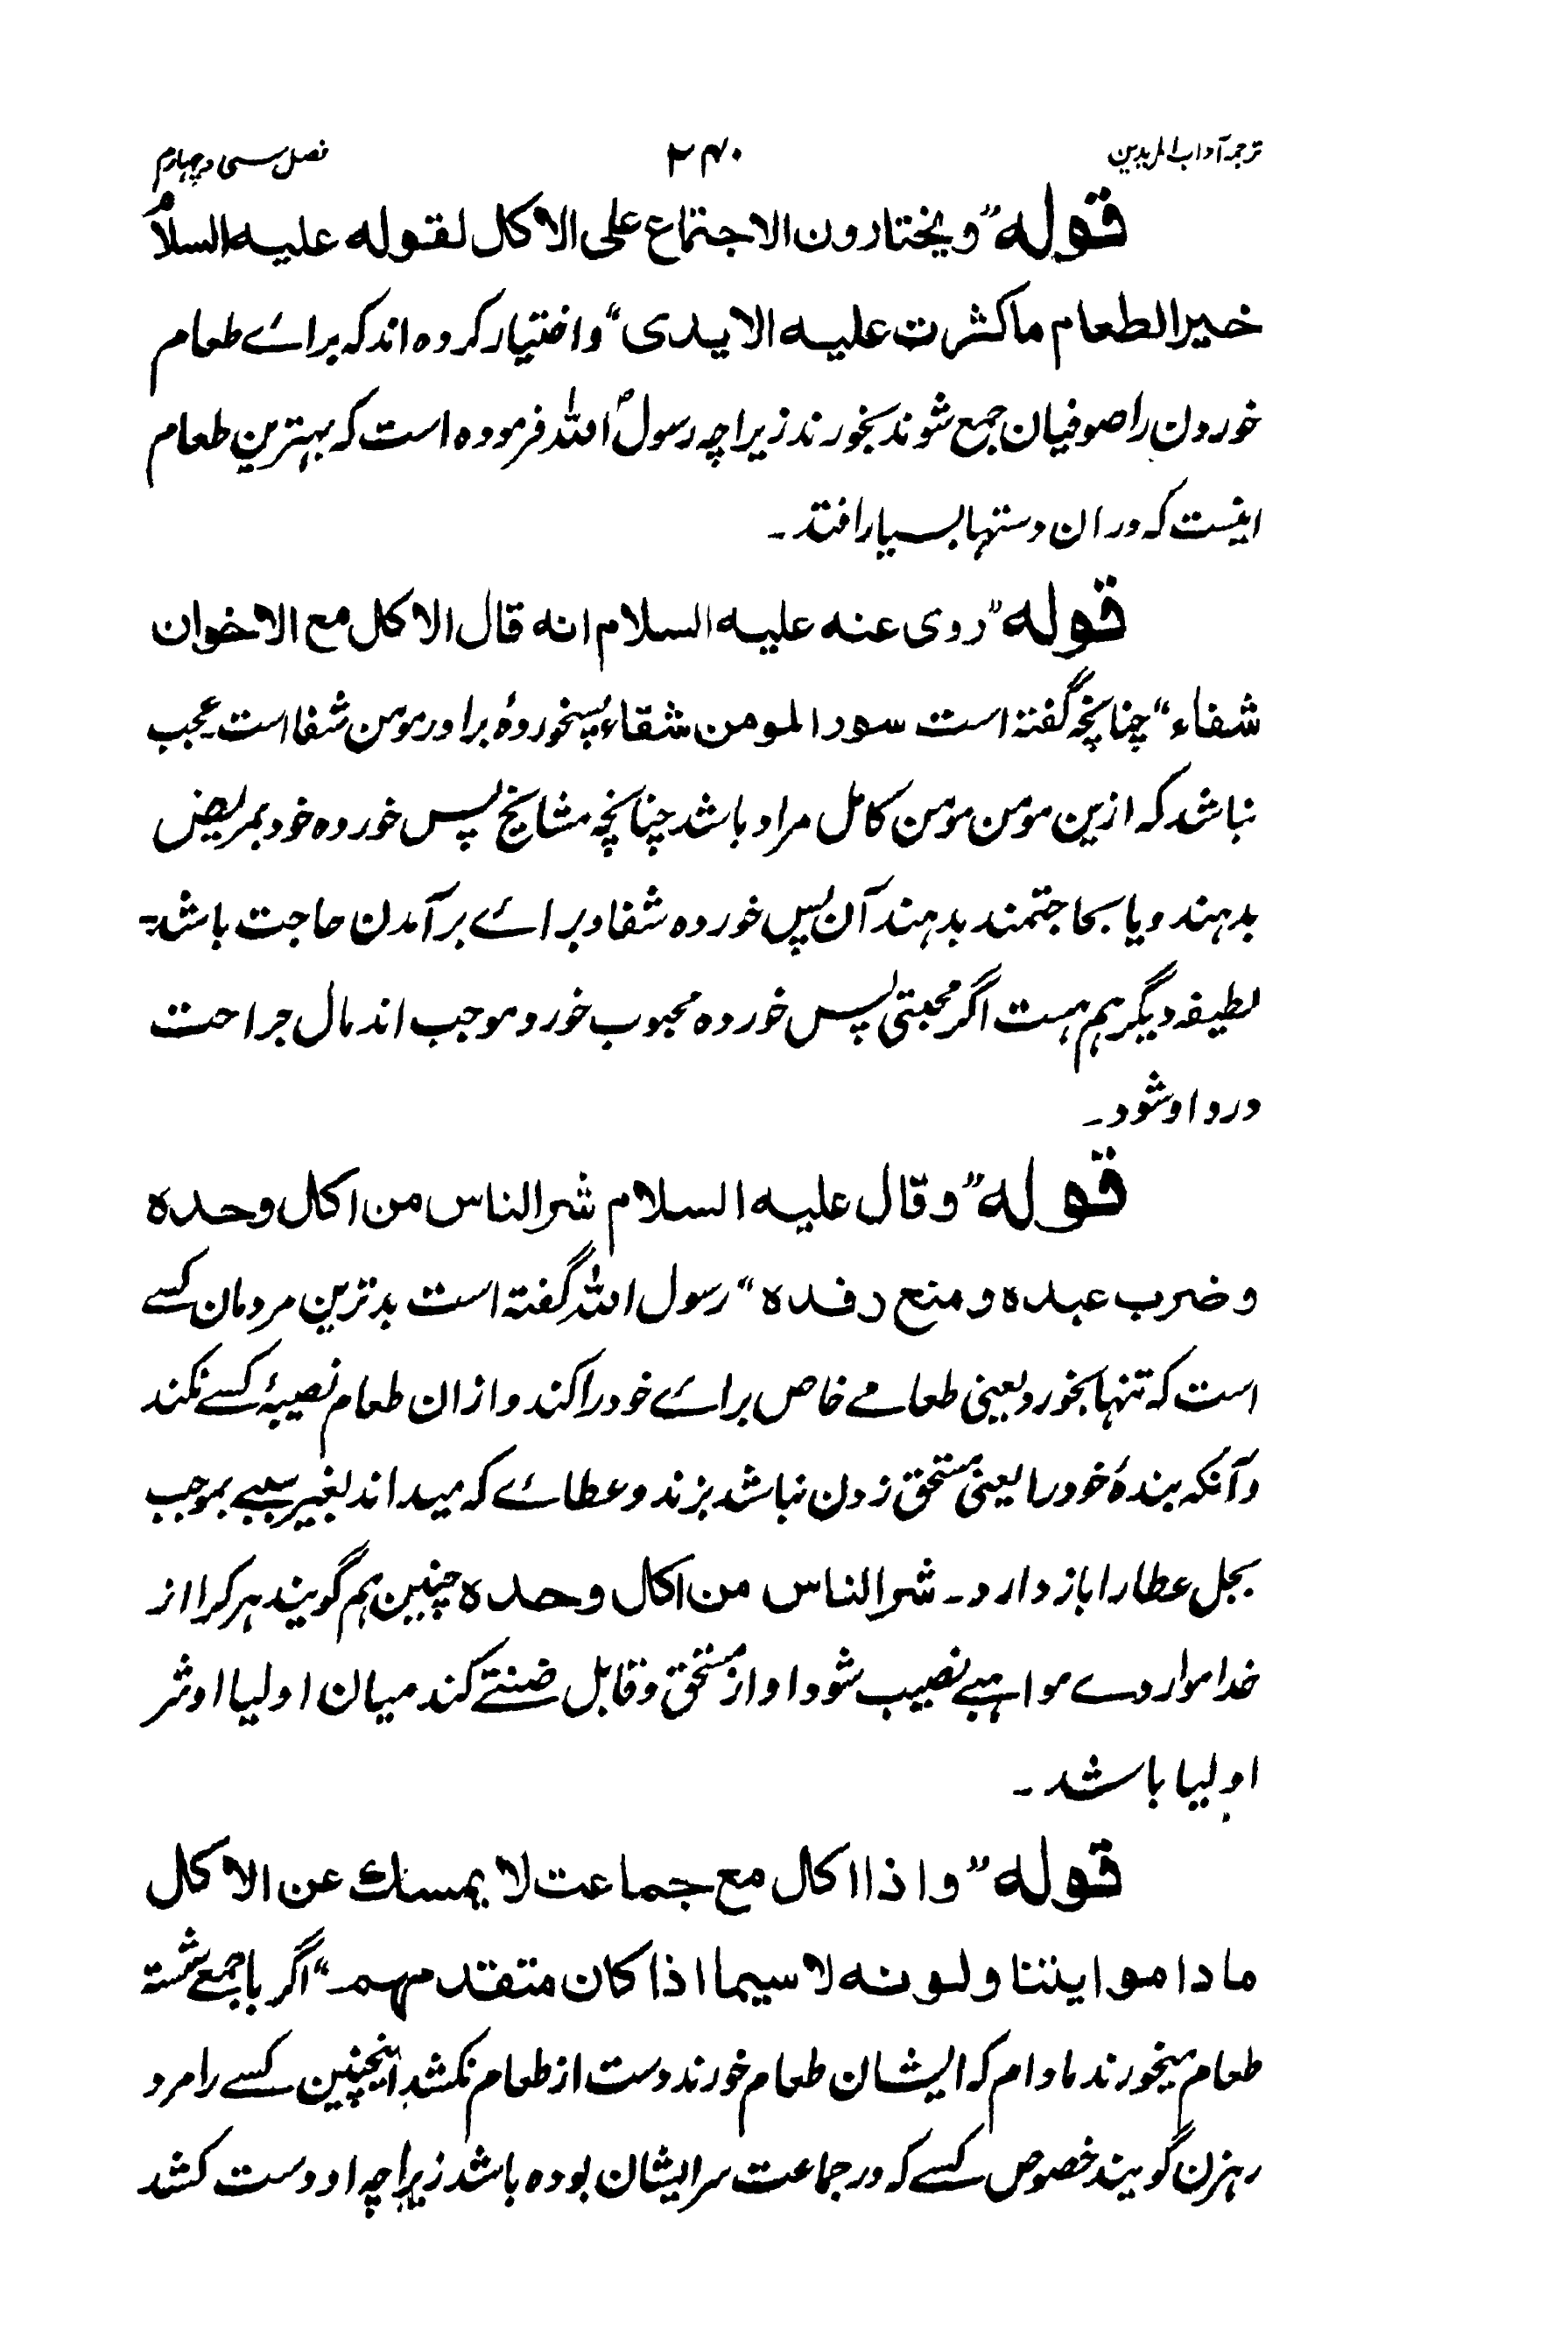 ترجمہ آداب المریدین ۲۴۰ فصل سی و چہارم
قوله "ویختارون الاجتماع علی الاکل لقوله علیه السلام
خیر الطعام ما کثرت علیه الایدی" و اختیار کرده اند که برائے طعام
خوردن را صوفیان جمع شوند بخورند زیراچہ رسولؐ اللہ فرموده است که بهترین طعام
اینست که دران دستها بسیار افتد۔
قوله "روی عنه علیه السلام انه قال الاکل مع الاخوان
شفاء" چنانچه گفته است سور المومن شفاء پسخوردۂ برادر مومن شفا است عجب
نباشد که ازین مومن مومن کامل مراد باشد چنانچه مشایخ پس خورده خود بمریض
بدهند و یا بحاجتمند بدهند آن پس خورده شفا و برائے بر آمدن حاجت باشد۔
لطیفه دیگر هم هست اگر محبتی پس خورده محبوب خورد موجب اندمال جراحت
درد او شود۔
قوله "وقال علیه السلام شر الناس من اکل وحده
وضرب عبده ومنع رفده" رسول اللہ گفته است بدترین مردمان کسے
است که تنها بخورد یعنی طعامے خاص برائے خود را کند و ازان طعام نصیبۂ کسے نکند
و آنکه بندۂ خود را یعنی مستحق زدن نباشد بزند و عطائے که میداند بغیر سببے بموجب
بخل عطا را باز دارد۔ شر الناس من اکل وحده چنین هم گویند هر کرا از
خدا مواردے مواہبے نصیب شود او از مستحق و قابل ضنتے کند میان اولیا او شر
اولیا باشد۔
قوله "واذا اکل مع جماعت لا یمسك عن الاکل
ما داموا یتناولونه لا سیما اذا کان متقدمهم" اگر با جمعے نشسته
طعام میخورند مادام که ایشان طعام خورند دست از طعام نکشد اینچنین کسے را مرد
رہزن گویند خصوص کسے که در جماعت سر ایشان بوده باشد زیراچہ او دست کشد